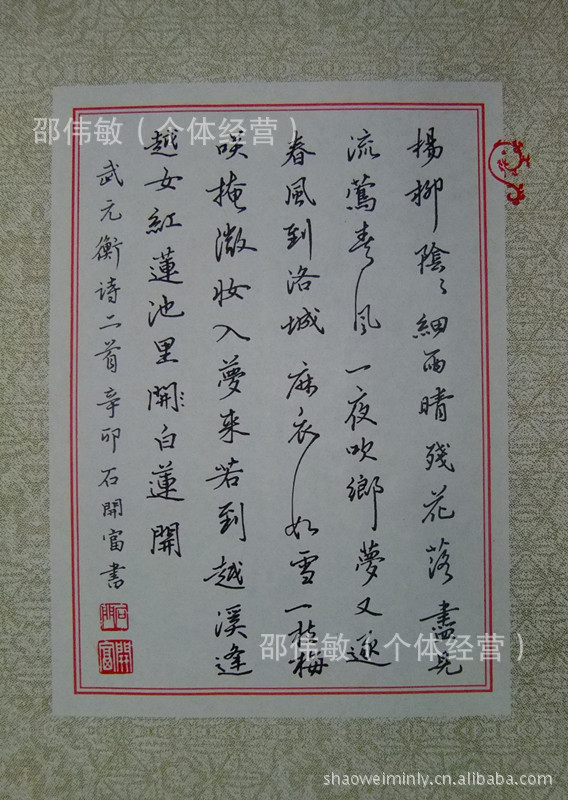 楊柳陰〻細雨晴殘花落盡見
流鶯春風一夜吹鄉夢又逐
春風到洛城麻衣如雪一枝梅
咲掩微妝入夢來若到越溪逢
越女紅蓮池里開白蓮開
武元衡诗二首辛卯石開富書
開富
邵伟敏（个体经营）
邵伟敏（个体经营）
shaoweiminly.cn.alibaba.com